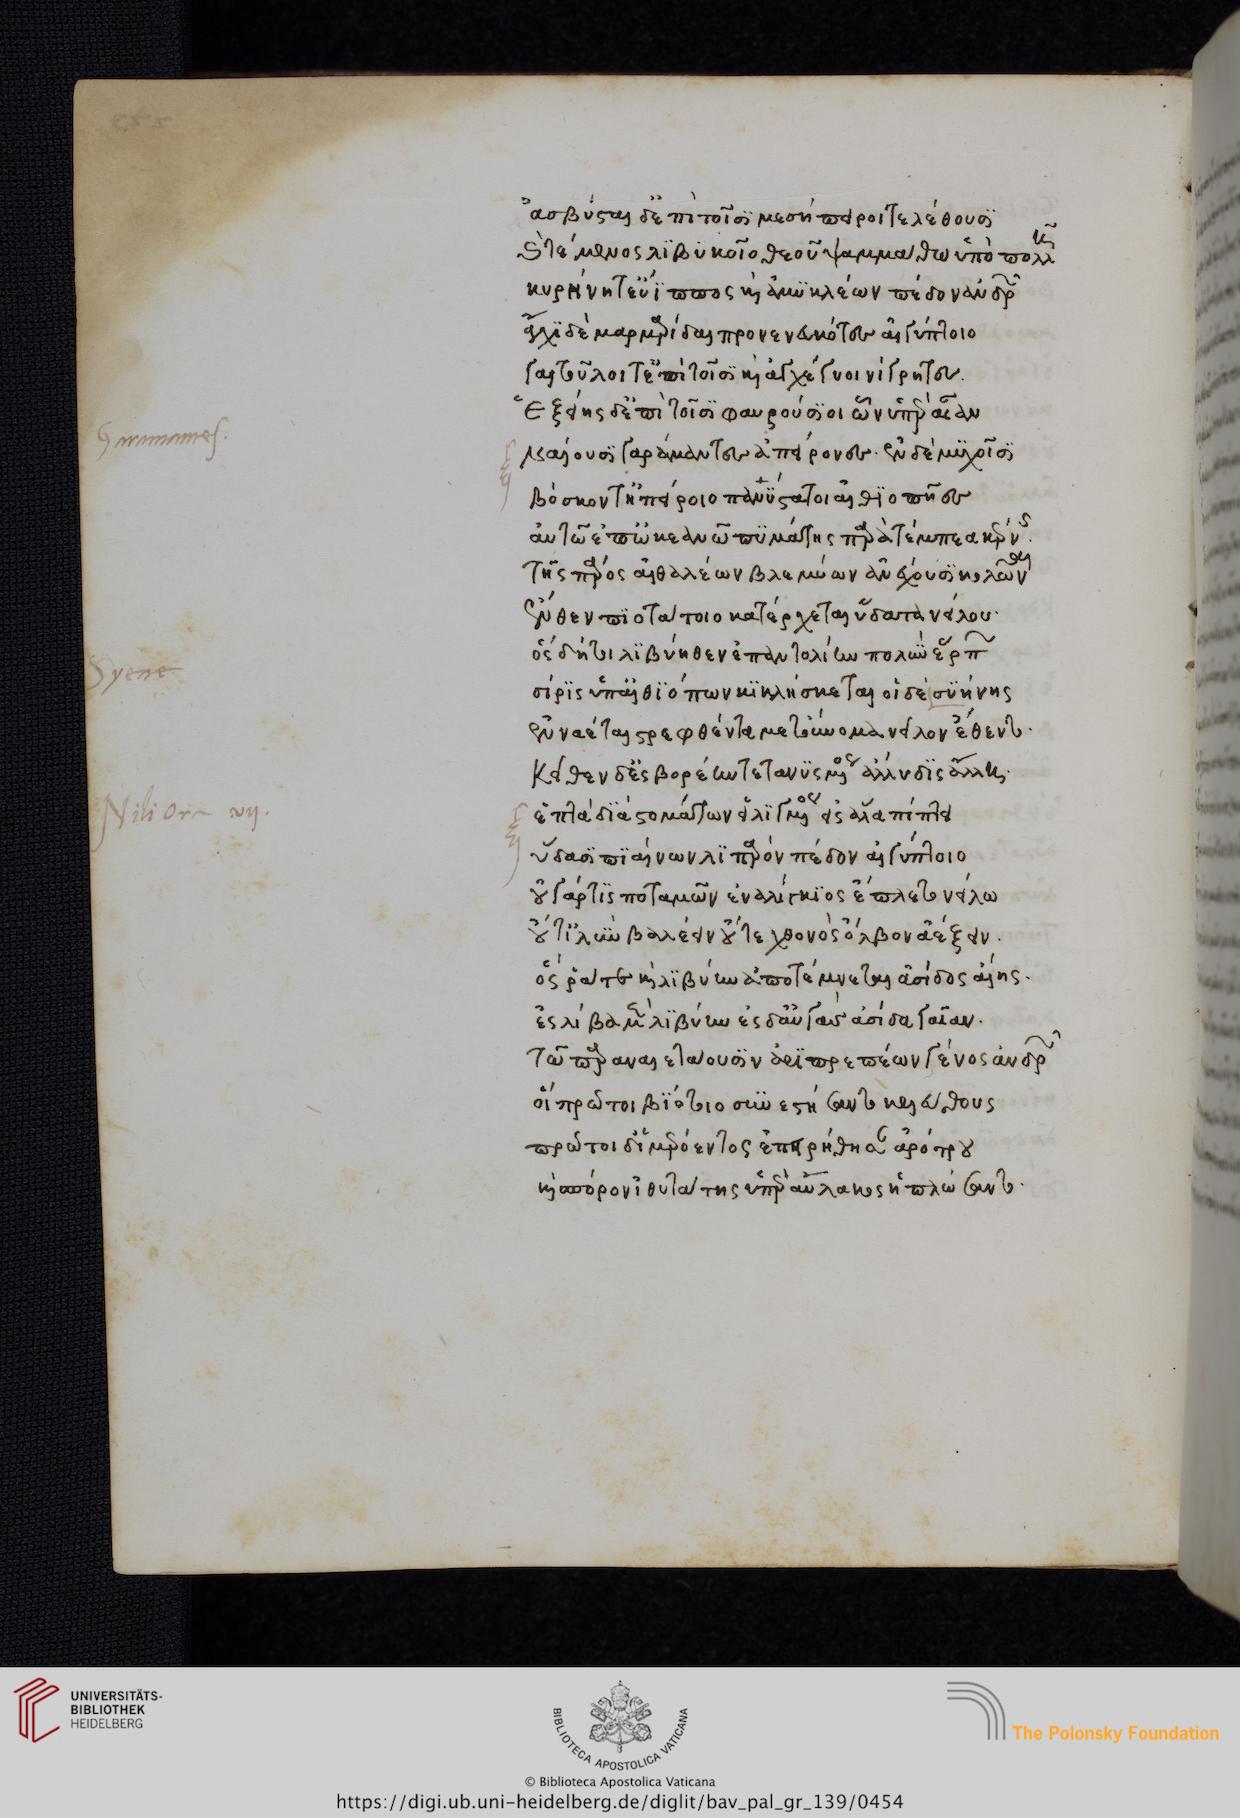 ἀσβύσται δ' ἐπὶ τοῖσι μεσήπειροι τελέθουσι
καὶ τέμενος λιβυκοῖο θεοῦ ψαμμάθῳ ὑπὸ πολλῇ
κυρήνη τ' εὔϊππος καὶ ἀμυκλέων πέδον ἀνδρῶν
ἄγχι δὲ μαρμαρίδαι προνενευκότες αἰγύπτοιο
γαιτοῦλοί τ' ἐπὶ τοῖσι καὶ ἀγχέγυοι νίγρητες.
Ἑξείης δ' ἐπὶ τοῖσι φαυρούσιοι ὧν ὑπὲρ αἶαν
ναίουσι γαράμαντες ἀπείρονες· ἐν δὲ μυχοῖσι
βόσκοντ' ἠπείροιο πανύστατοι αἰθιοπῆες
αὐτῷ ἐπ' ὠκεανῷ πυμάτης παρὰ τέμπεα κέρνης.
τῆς πάρος αἰθαλέων βλεμύων ἀνέχουσι κολῶναι
ἔνθεν πιοτάτοιο κατέρχεται ὕδατα νείλου·
ὃς δή τοι λιβύηθεν ἐπ' ἀντολίην πολὺν ἕρπων
σίρις ὑπ' αἰθιόπων κικλήσκεται οἱ δὲ συήνης
ἐνναέται στρεφθέντα μετ' οὔνομα νεῖλον ἔθεντο.
Κεῖθεν δ' ἐς βορέην τετανυσμένος ἄλλυδις ἄλλῃ.
ἑπτὰ διὰ στομάτων εἱλιγμένος εἰς ἅλα πίπτει
ὕδασι πιαίνων λιπαρὸν πέδον αἰγύπτοιο
οὐ γάρ τις ποταμῶν ἐναλίγκιος ἔπλετο νείλῳ
οὔτ' ἰλὺν βαλέειν οὔτε χθονὸς ὄλβον ἀέξειν.
ὅς ῥά τε καὶ λιβύην ἀποτέμνεται ἀσίδος αἴης.
ἐς λίβα μὲν λιβύην ἐς δ' αὐγὰς ἀσίδα γαῖαν.
τῷ πάρα ναιετάουσιν ἀριπρεπέων γένος ἀνδρῶν
οἳ πρῶτοι βιότοιο διεστήσαντο κελεύθους
πρῶτοι δ' ἱμερόεντος ἐπειρήθησαν ἀρότρου
καὶ σπόρον ἰθυτάτης ὑπὲρ αὔλακος ἡπλώσαντο.
Garamantes.
Syene
Nili Ora vij.
UNIVERSITÄTS-
BIBLIOTHEK
HEIDELBERG
BIBLIOTECA APOSTOLICA VATICANA
The Polonsky Foundation
© Biblioteca Apostolica Vaticana
https://digi.ub.uni-heidelberg.de/diglit/bav_pal_gr_139/0454